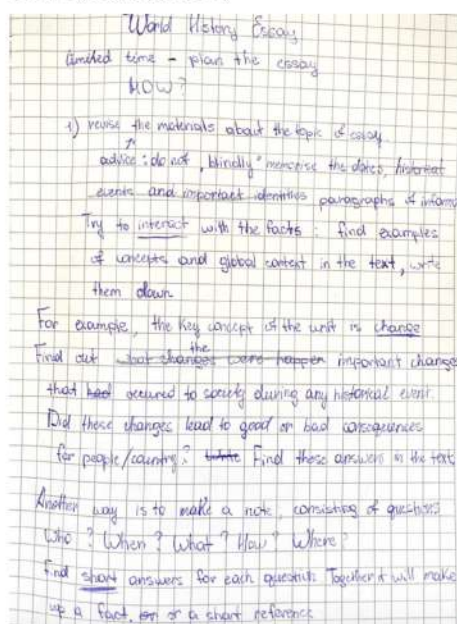 World History Essay
Limited time - plan the essay
HOW?
1) revise the materials about the topic of essay.
advice: do not "blindly" memorise the dates, historical
events and important identities paragraphs of inform
Try to interact with the facts: find examples
of concepts and global context in the text, write
them down
For example, the key concept of the unit is change
Find out the important changes
that occured to society during any historical event.
Did these changes lead to good or bad consequences
for people/country? Find these answers in the text
Another way is to make a note, consisting of questions
Who? When? What? How? Where?
Find short answers for each question. Together it will make
up a fact, or a short reference